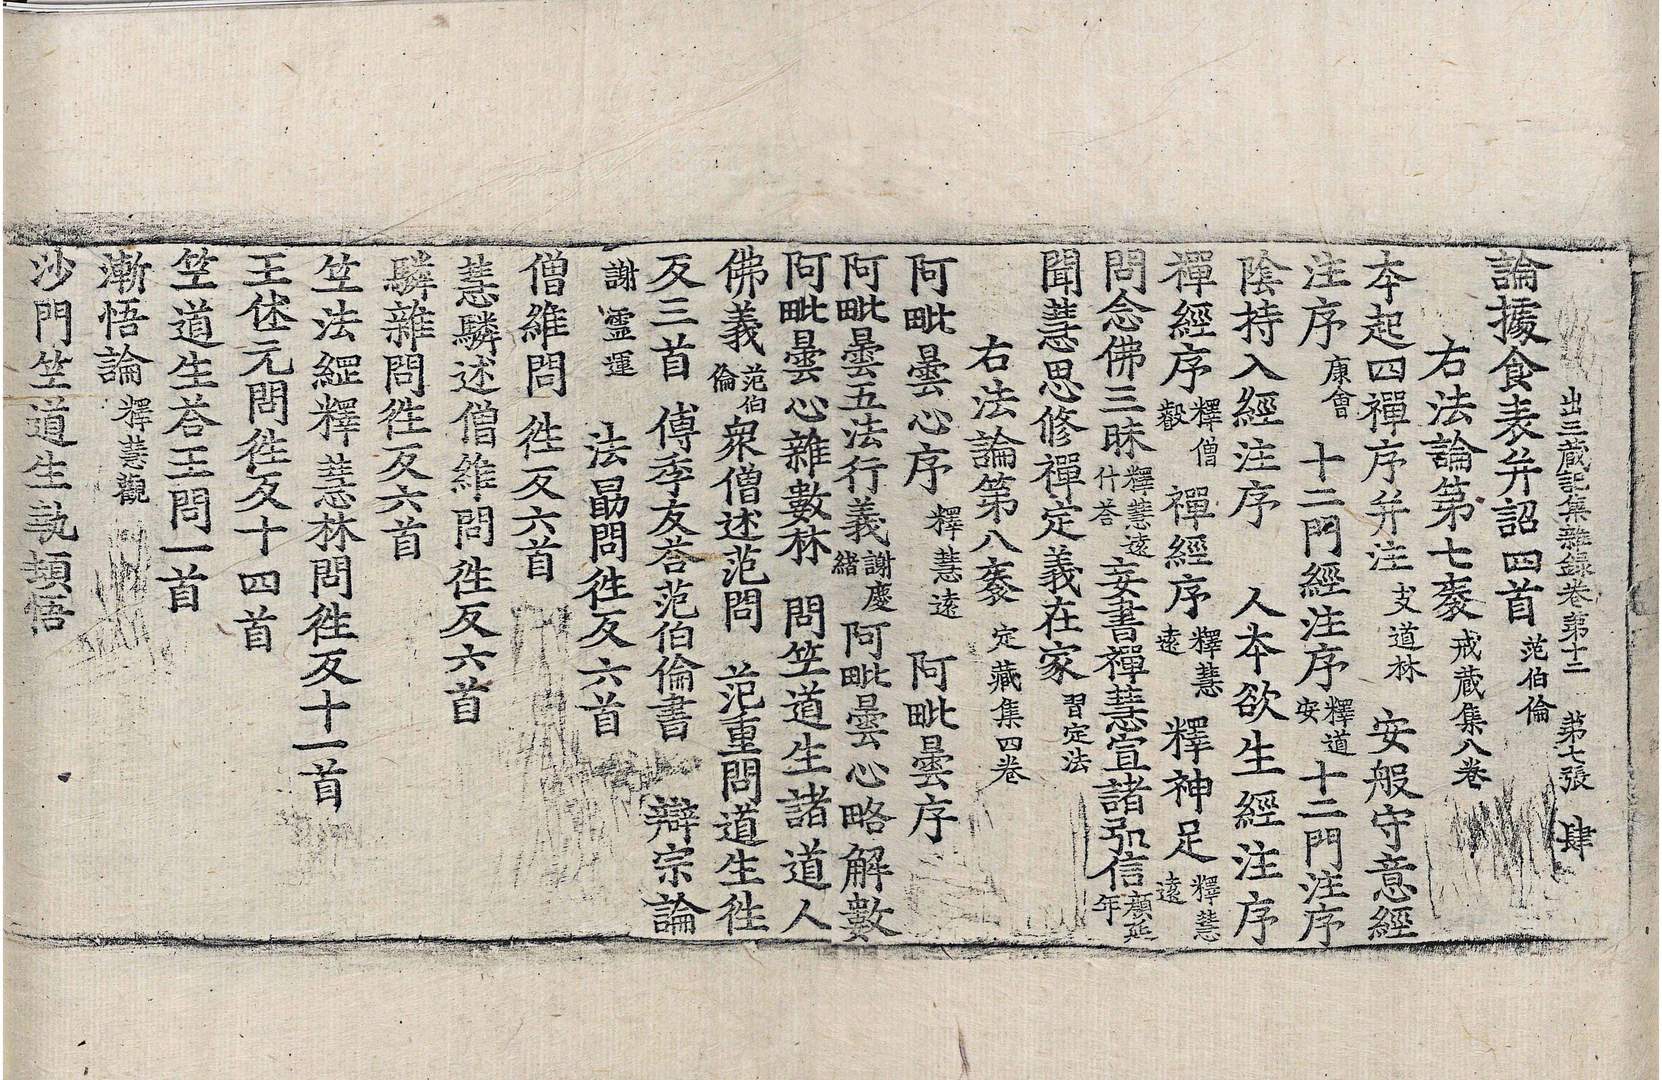 出三蔵記集雜錄卷第十二 第七張 肆
論據食表并詔四首 范伯倫
右法論第七袠 戒蔵集八卷
本起四禪序并注 支道林 安般守意經
注序 康會 十二門經注序 釋道安 十二門注序
陰持入經注序 人本欲生經注序
禪經序 釋僧叡 禪經序 釋慧遠 釋神足 釋慧遠
問念佛三昧 釋慧遠什荅 妄書禪慧宣諸弘信 顏延年
聞慧思修禪定義在家 習定法
右法論第八袠 定藏集四卷
阿毗曇心序 釋慧遠 阿毗曇序
阿毗曇五法行義 謝慶緒 阿毗曇心略解數
阿毗曇心雜數林 問竺道生諸道人
佛義 范伯倫 衆僧述范問 范重問道生徃
反三首 傅季友荅范伯倫書 辯宗論
謝靈運 法勗問徃反六首
僧維問 徃反六首
慧驎述僧維問徃反六首
驎雜問徃反六首
竺法綱釋慧林問徃反十一首
王休元問徃反十四首
竺道生荅王問一首
漸悟論 釋慧觀
沙門竺道生執頓悟